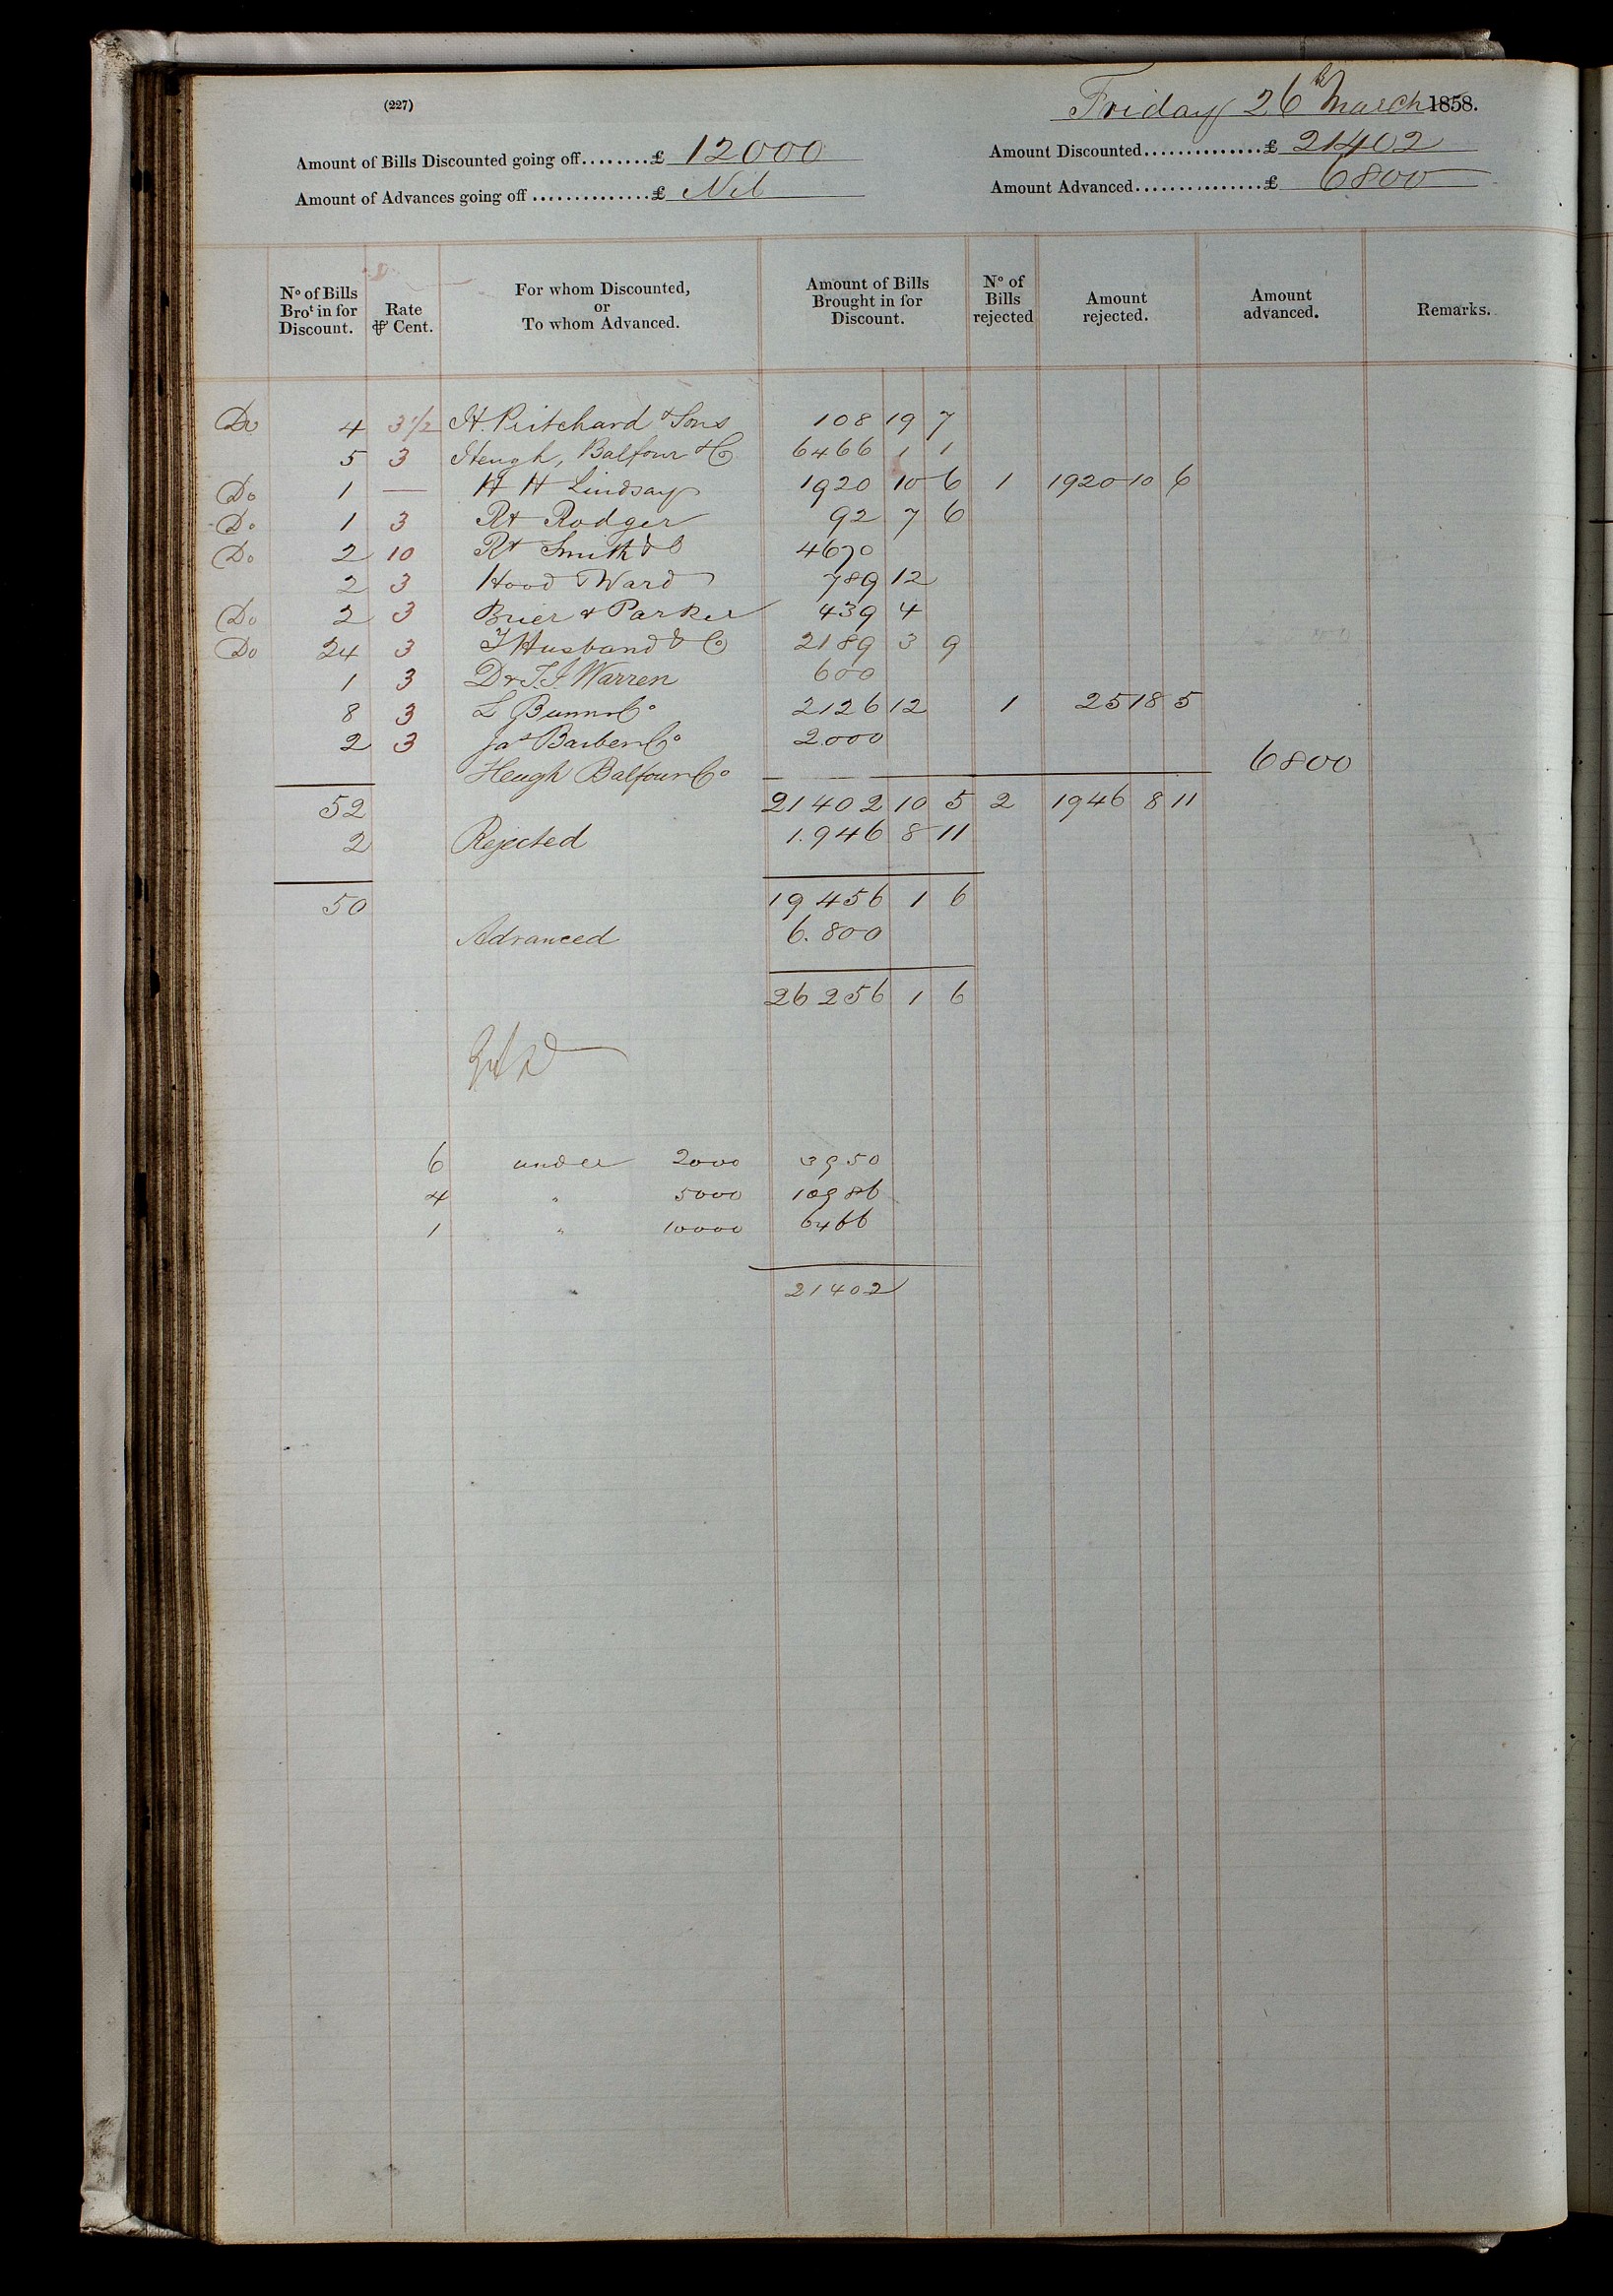 (227) Friday 26th March 1858.
Amount of Bills Discounted going off........£ 12000 Amount Discounted..............£ 21402
Amount of Advances going off ..............£ Nil Amount Advanced...............£ 6800
No of Bills Brot in for Discount. Rate ⅌ Cent. For whom Discounted, or To whom Advanced. Amount of Bills Brought in for Discount. No of Bills rejected Amount rejected. Amount advanced. Remarks.
Do 4 3 1/2 H. Pritchard & Sons 108 19 7
5 3 Heugh, Balfour & Co 6466 1 1
Do 1 — H H Lindsay 1920 10 6 1 1920 10 6
Do 1 3 Rt Rodger 92 7 6
Do 2 10 Rt Smith & Co 4670
2 3 Hood & Ward 789 12
Do 2 3 Brier & Parker 439 4
Do 24 3 T Husband & Co 2189 3 9
1 3 Dr T.J. Warren 600
8 3 L 2126 12 1 25 18 5
2 3 Jas Barber Co 2000
Heugh Balfour Co 6800
52 21402 10 5 2 1946 8 11
2 Rejected 1.946 8 11
50 19456 1 6
Advanced 6.800
26256 1 6
6 under 2000 3950
4 " 5000 10986
1 " 10000 6466
21402